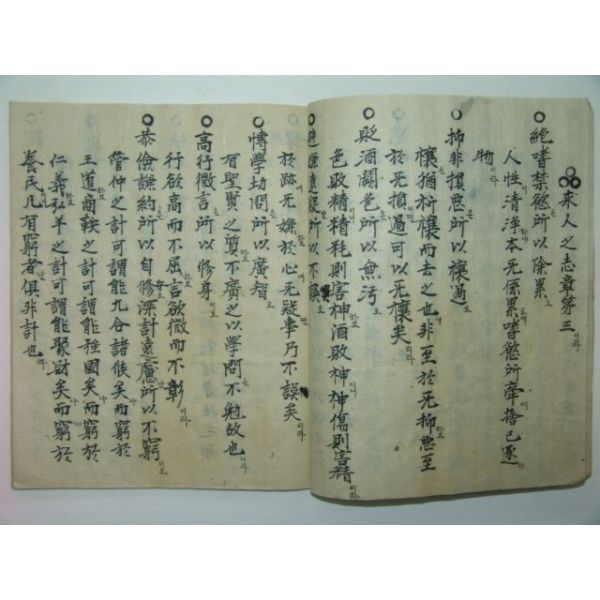 ○求人之志章第三
○絶嗜禁慾所以除累
人性清淨本无係累嗜慾所牽捨己逐
物
○抑非損惡所以禳過
禳猶祈禳而去之也非至於无抑惡至
於无損過可以无禳矣
○貶酒闕色所以無汚
色敗精精耗則害神酒敗神神傷則害精
○避嫌遠疑所以不誤
於跡无嫌於心无疑事乃不誤矣
○博學切問所以廣智
有聖賢之質不廣之以學問不勉故也
○高行微言所以修身
行欲高而不屈言欲微而不彰
○恭儉謙約所以自修深計遠慮所以不窮
管仲之計可謂能九合諸侯矣而窮於
王道商鞅之計可謂能强國矣而窮於
仁義弘羊之計可謂能聚財矣而窮於
養民凡有窮者俱非計也